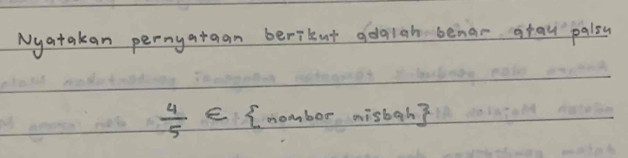 Nyatakan pernyataan berikut adalah benar atau palsu
4/5 ∈ {nombor nisbah}